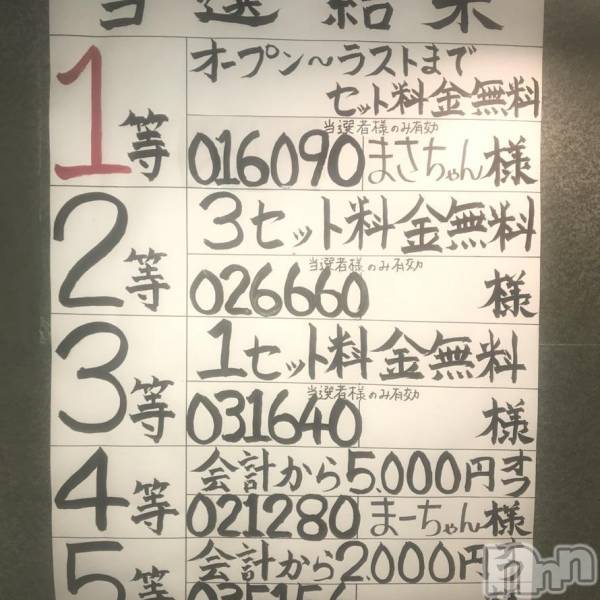 当選結果
1等
オープン〜ラストまで
セット料金無料
当選者様のみ有効
016090 まさちゃん様
2等
3セット料金無料
当選者様のみ有効
026660 様
3等
1セット料金無料
当選者様のみ有効
031640 様
4等
会計から5,000円オフ
021280 まーちゃん様
5等
会計から2,000円